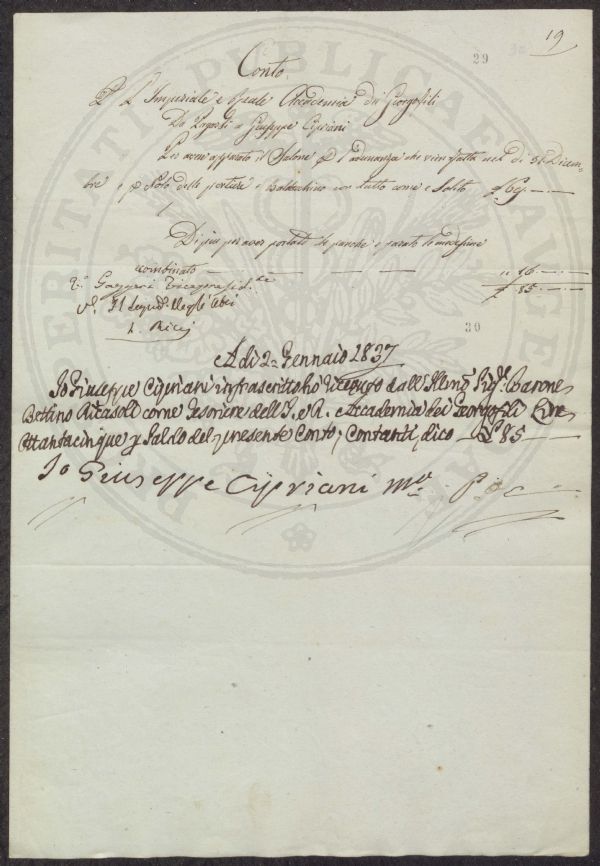 19
29
30
Conto
P. L'Imperiale e Reale Accademia dei Georgofili
Da Pagarsi a Giuseppe Cipriani
Per aver apparato il Salone p l'adunanza che vien fatta nel dì 31 Dicem-
bre e p Nolo delle portiere e Baldacchino con tutto come e Solito £ 69.—.—
Di più per aver portato le panche e parato le medesime
combinato — — — — " 16.—.—
£ 85.—.—
V.° Il Segret. degli Atti
L. Ricci
30
A dì 2 Gennaio 1837
Io Giuseppe Cipriani infrascritto ho ricevuto dall'Illmo Sigr. Barone
Bettino Ricasoli come Tesoriere dell'I. e R. Accademia dei Georgofili Lire
Ottantacinque p Saldo del presente Conto, Contanti, dico — £ 85 —
Io Giuseppe Cipriani mo. p.
PERITATI PUBLICAE